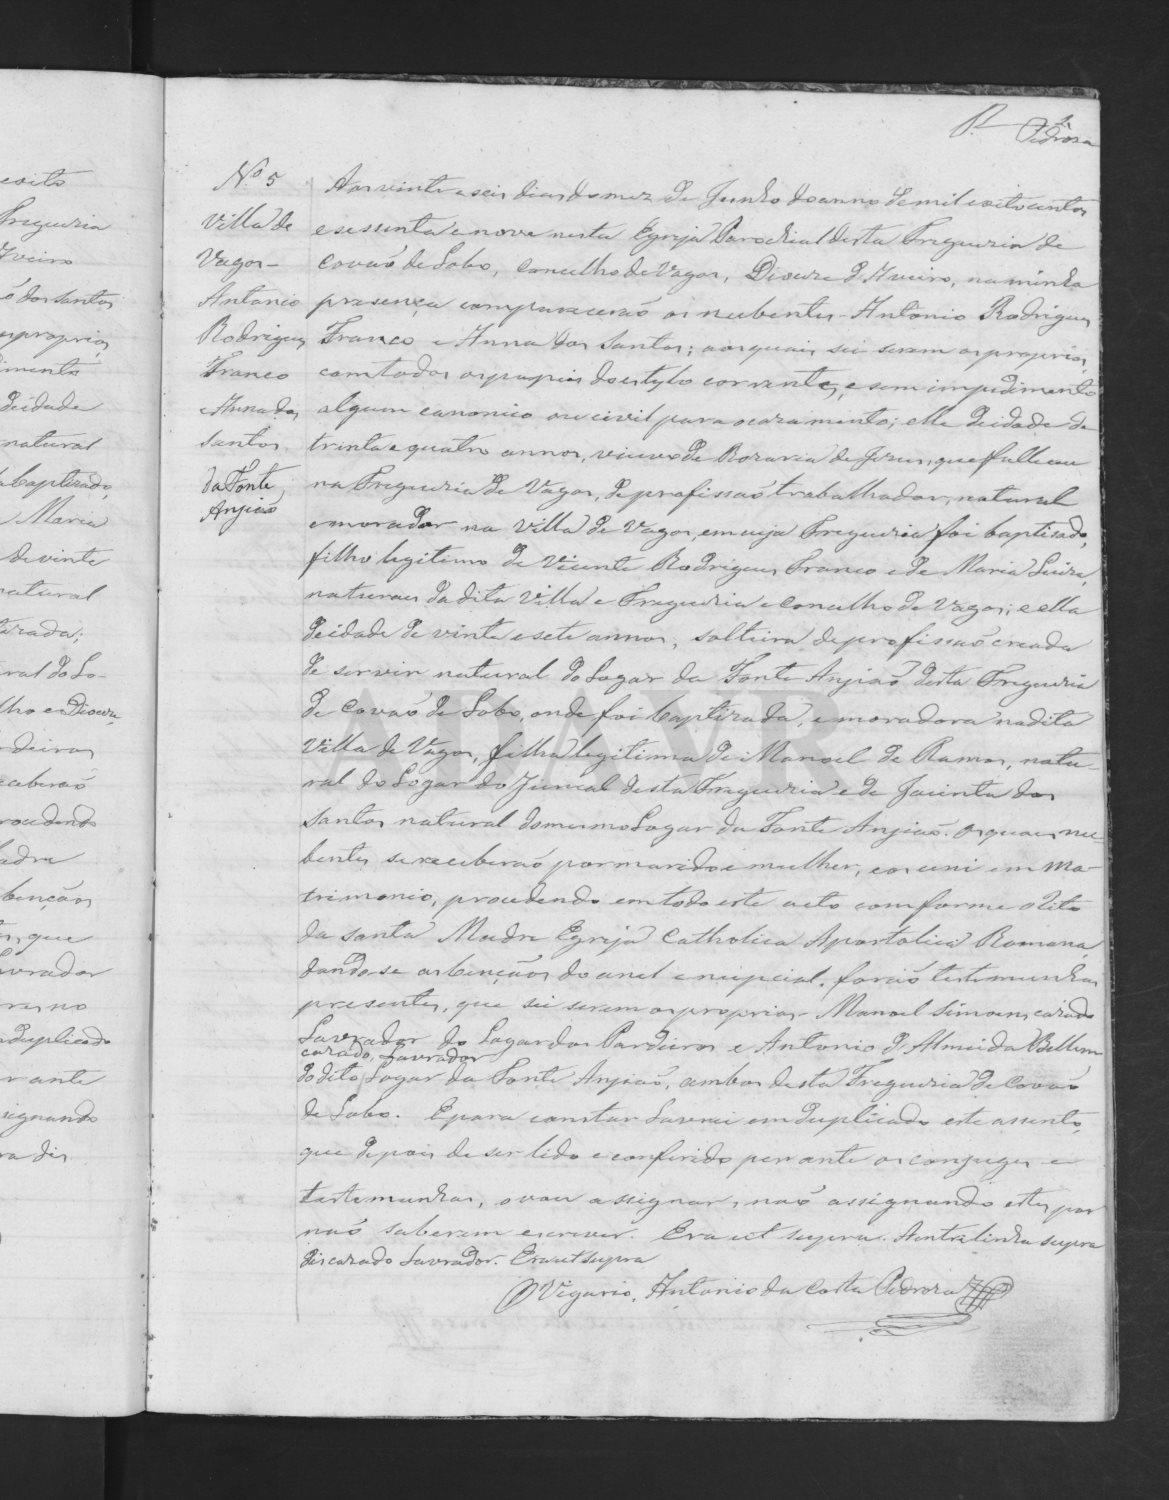 Pedroza
N.º 5
Villa de
Vagos -
Antonio
Rodrigues
Franco
e Anna dos
Santos
da Fonte
Anjião
Aos vinte e seis dias do mez de Junho do anno de mil e oito centos
e sessenta e nove nesta Egreja Parochial desta Freguezia de
Covão de Lobo, Concelho de Vagos, Diocese d'Aveiro, na minha
presença comparecerão os nubentes - Antonio Rodrigues
Franco e Anna dos Santos; aos quaes sei serem os proprios,
com todos os papeis do estylo correntes, e sem impedimento
algum canonico ou civil para o cazamento; elle de idade de
trinta e quatro annos, viuvo de Rozaria de Jezus, que falleceu
na Freguezia de Vagos, de profissão trabalhador, natural
e morador na Villa de Vagos, em cuja Freguezia foi baptisado,
filho legitimo de Vicente Rodrigues Franco e de Maria Luiza,
naturaes da dita Villa e Freguezia e Concelho de Vagos; e ella
de idade de vinte e sete annos, solteira de profissão creada
de servir natural do Logar da Fonte Anjião desta Freguezia
de Covão de Lobo, onde foi baptizada, e moradora na dita
Villa de Vagos, filha legitima de Manoel de Ramos, natu-
ral do Logar do Juncal desta Freguezia e de Jacinta dos
Santos natural do mesmo Logar da Fonte Anjião. Os quaes nu-
bentes se receberão por marido e mulher, e os uni em Ma-
trimonio, procedendo em todo este acto conforme o Rito
da Santa Madre Egreja Catholica Apostolica Romana,
dando-se as benções do anel e nupcial. forão testemunhas
presentes, que sei serem os proprios - Manoel Simoens, cazado
Lavrador do Logar dos Pardieiros e Antonio d'Almeida Bellem
cazado, Lavrador
do dito Logar da Fonte Anjião, ambos desta Freguezia de Covão
de Lobo. E para constar Lavrei em duplicado este assento,
que depois de ser lido e conferido perante os conjuges e
testemunhas, o vou assignar, não assignando estes por
não saberem escrever. Era ut supra. A entrelinha supra
diz cazado Lavrador. Era ut supra
O Vigario, Antonio da Costa Pedroza
ADAVR
exito
Freguezia
Aveiro
dos Santos
os proprios,
dimento
de idade
natural
baptizado,
Maria
de vinte
natural
tizada;
ral do Lo-
lho e Dioceze
receberão
rocedendo
Madre
benções
que
Lavrador
duplicado
rante
signando